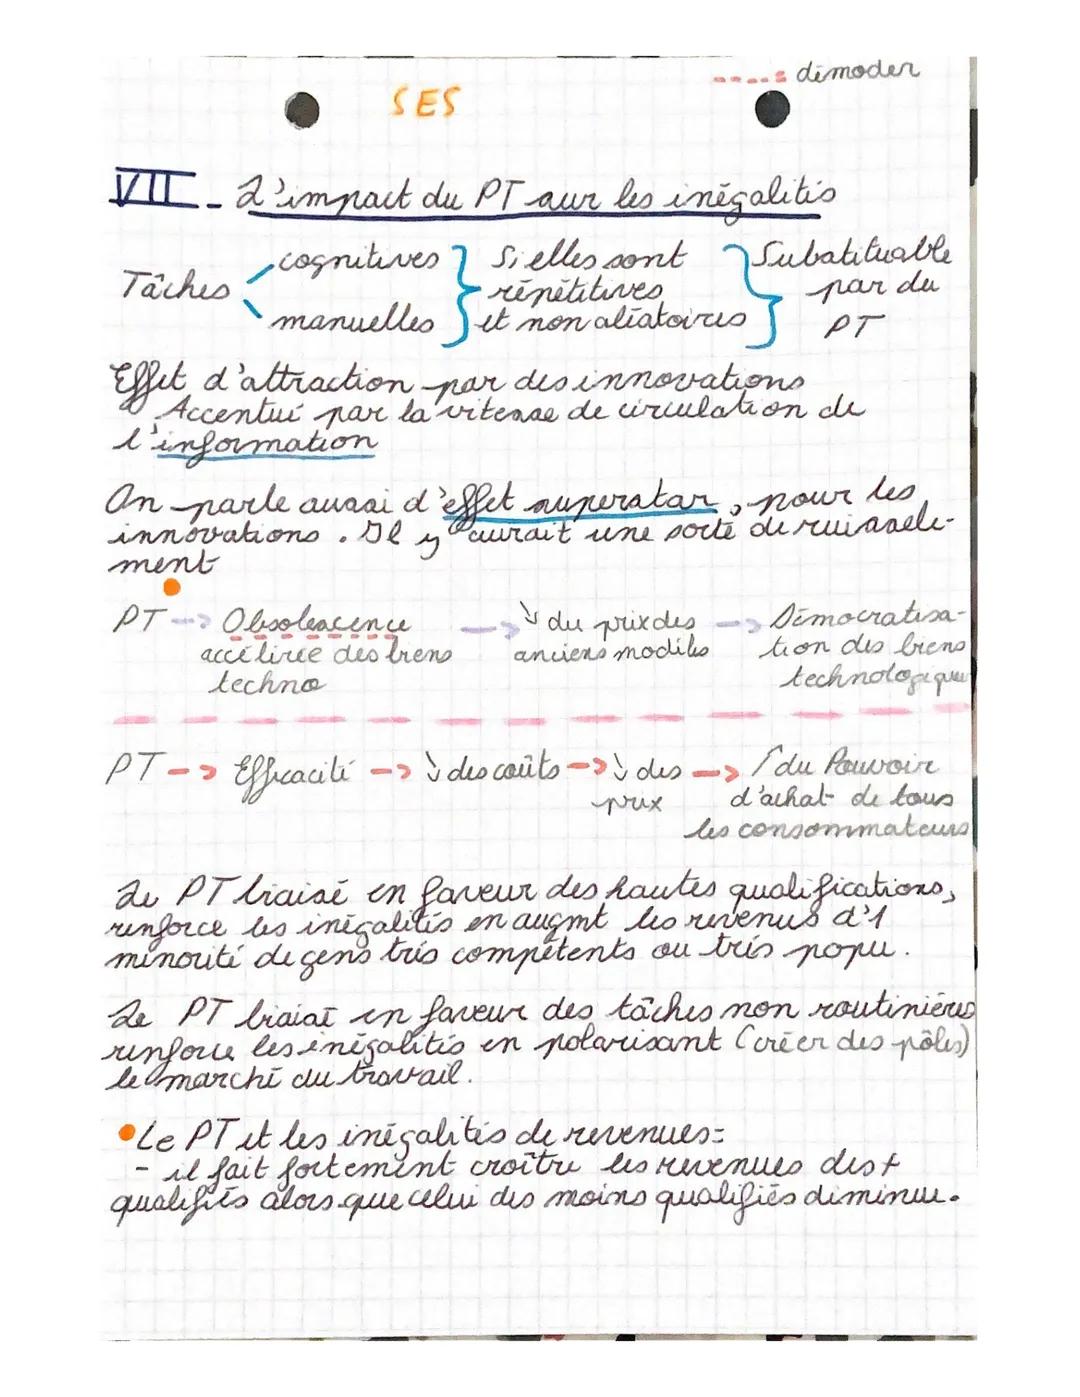 ---- = démoder
SES
VII - L'impact du PT sur les inégalités
Tâches < cognitives } Si elles sont } Substituable
répétitives par du
manuelles et non aléatoires PT
Effet d'attraction par des innovations
Accentué par la vitesse de circulation de
l'information
On parle aussi d'effet superstar, pour les
innovations. Il y aurait une sorte de ruisselle-
ment
PT --> Obsolescence --> ↘ du prix des --> Démocratisa-
accélérée des biens anciens modèles tion des biens
techno technologiques
PT --> Efficacité --> ↘ des coûts --> ↘ des --> ↗ du Pouvoir
prix d'achat de tous
les consommateurs
Le PT biaisé en faveur des hautes qualifications,
renforce les inégalités en augmt les revenus d'1
minorité de gens très compétents ou très popu.
Le PT biaisé en faveur des tâches non routinières
renforce les inégalités en polarisant (créer des pôles)
le marché du travail.
• Le PT et les inégalités de revenues =
- il fait fortement croître les revenues des +
qualifiés alors que celui des moins qualifiés diminue.